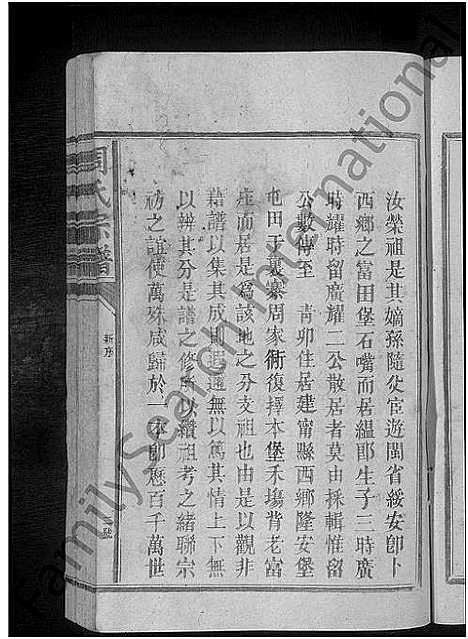 汝榮祖是其嫡孫隨父宦遊閩省綏安卽卜
西鄉之富田堡石嘴而居縕郎生子三時廣
時耀時留廣耀二公散居者莫由採輯惟留
公數傳至 青卯住居建甯縣西鄉隆安堡
屯田于裏寨周家衕復擇本堡禾塲背老富
庄而居是爲該地之分支祖也由是以觀非
藉譜以集其成則遐邇無以篤其情上下無
以辨其分是譜之修所以纘祖考之緒聯宗
祊之誼使萬殊咸歸於一本卽歷百千萬世
周氏宗譜
新序
二號
FamilySearch International